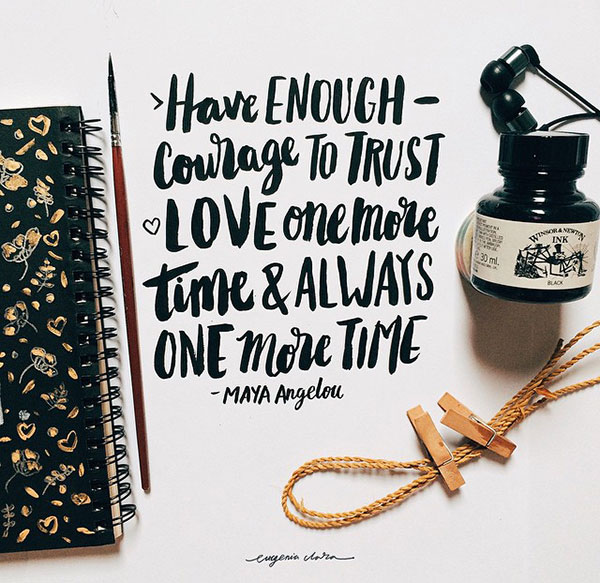 Have ENOUGH –
courage TO TRUST
LOVE one more
time & ALWAYS
ONE more TIME
- MAYA Angelou
WINSOR & NEWTON
INK
30 ml.
BLACK
eugenia clara